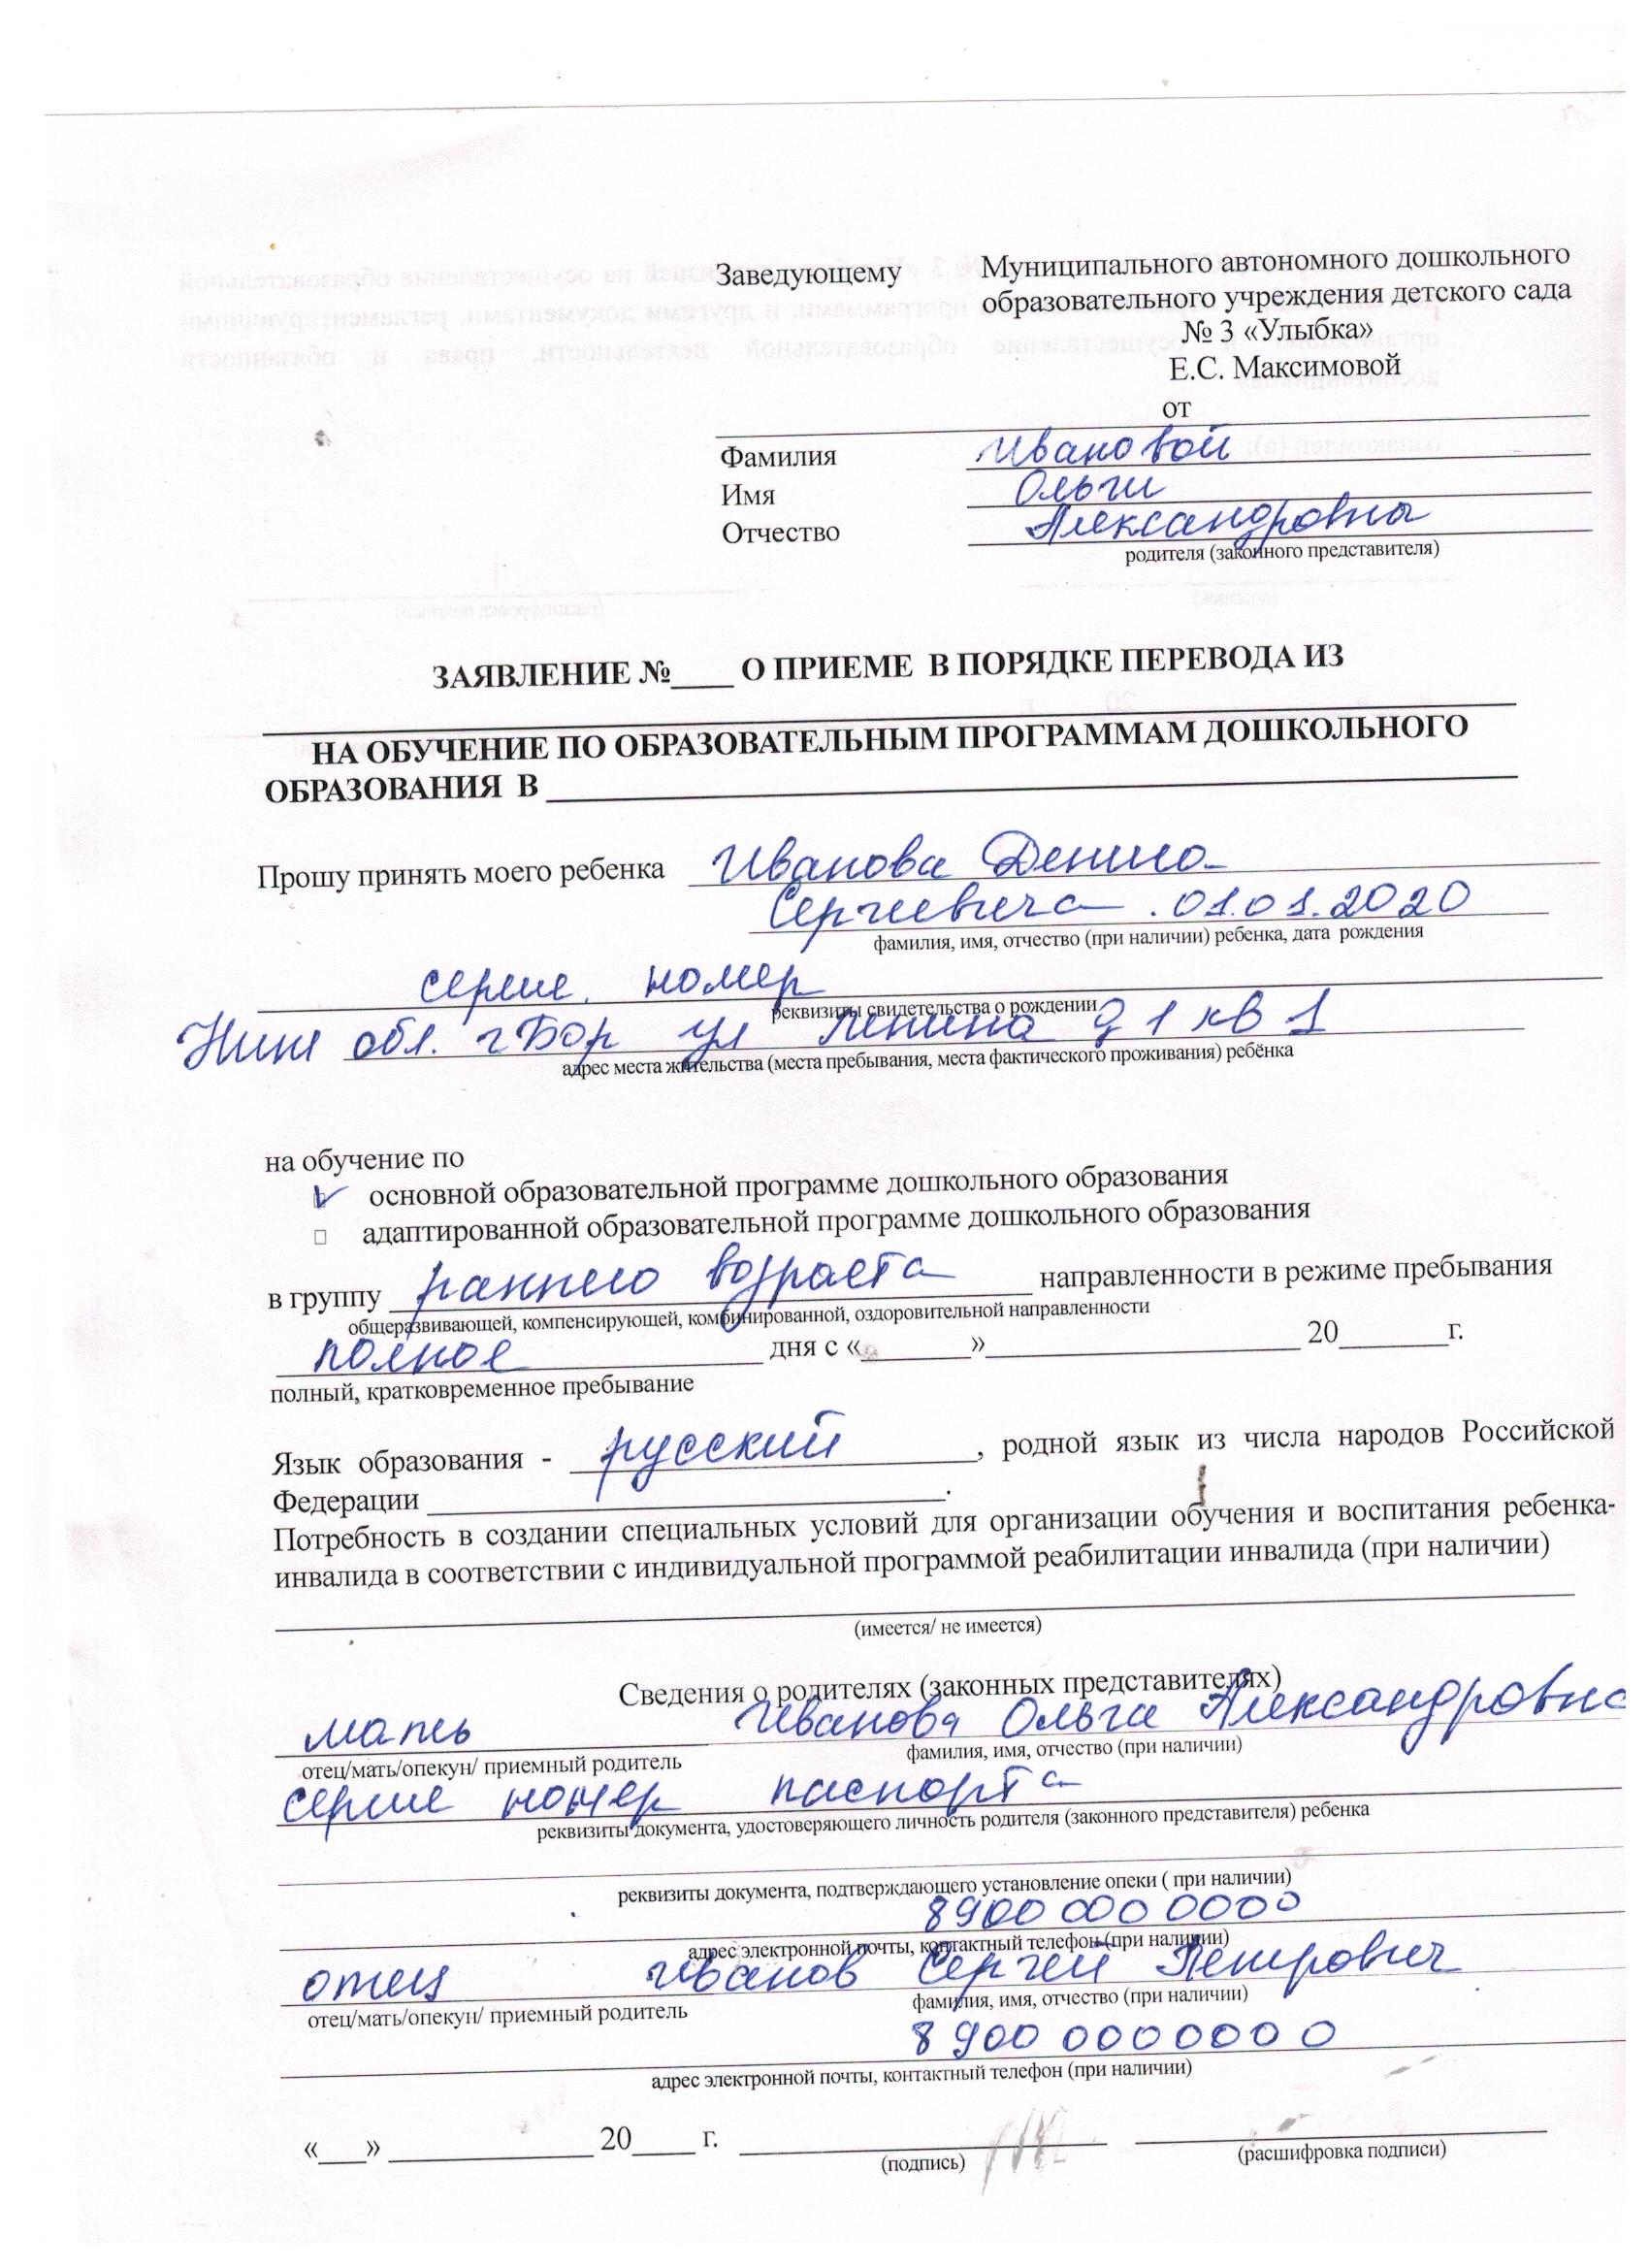 Заведующему Муниципального автономного дошкольного
образовательного учреждения детского сада
№ 3 «Улыбка»
Е.С. Максимовой
от
Фамилия Ивановой
Имя Ольги
Отчество Александровны
родителя (законного представителя)
ЗАЯВЛЕНИЕ №____ О ПРИЕМЕ В ПОРЯДКЕ ПЕРЕВОДА ИЗ
НА ОБУЧЕНИЕ ПО ОБРАЗОВАТЕЛЬНЫМ ПРОГРАММАМ ДОШКОЛЬНОГО
ОБРАЗОВАНИЯ В
Прошу принять моего ребенка Иванова Дениса
Сергеевича . 01.01.2020
фамилия, имя, отчество (при наличии) ребенка, дата рождения
серия, номер
реквизиты свидетельства о рождении
Ниж обл. г Бор ул Ленина д 1 кв 1
адрес места жительства (места пребывания, места фактического проживания) ребёнка
на обучение по
основной образовательной программе дошкольного образования
адаптированной образовательной программе дошкольного образования
в группу раннего возраста направленности в режиме пребывания
общеразвивающей, компенсирующей, комбинированной, оздоровительной направленности
полное дня с «________»______________________ 20________г.
полный, кратковременное пребывание
Язык образования - русский, родной язык из числа народов Российской
Федерации ____________________.
Потребность в создании специальных условий для организации обучения и воспитания ребенка-
инвалида в соответствии с индивидуальной программой реабилитации инвалида (при наличии)
(имеется/ не имеется)
Сведения о родителях (законных представителях)
мать Иванова Ольга Александровна
отец/мать/опекун/ приемный родитель фамилия, имя, отчество (при наличии)
серия номер паспорта
реквизиты документа, удостоверяющего личность родителя (законного представителя) ребенка
реквизиты документа, подтверждающего установление опеки ( при наличии)
8900 000 0000
адрес электронной почты, контактный телефон (при наличии)
отец Иванов Сергей Петрович
отец/мать/опекун/ приемный родитель фамилия, имя, отчество (при наличии)
8 900 000 0000
адрес электронной почты, контактный телефон (при наличии)
«___» ______________ 20____ г.
(подпись) (расшифровка подписи)